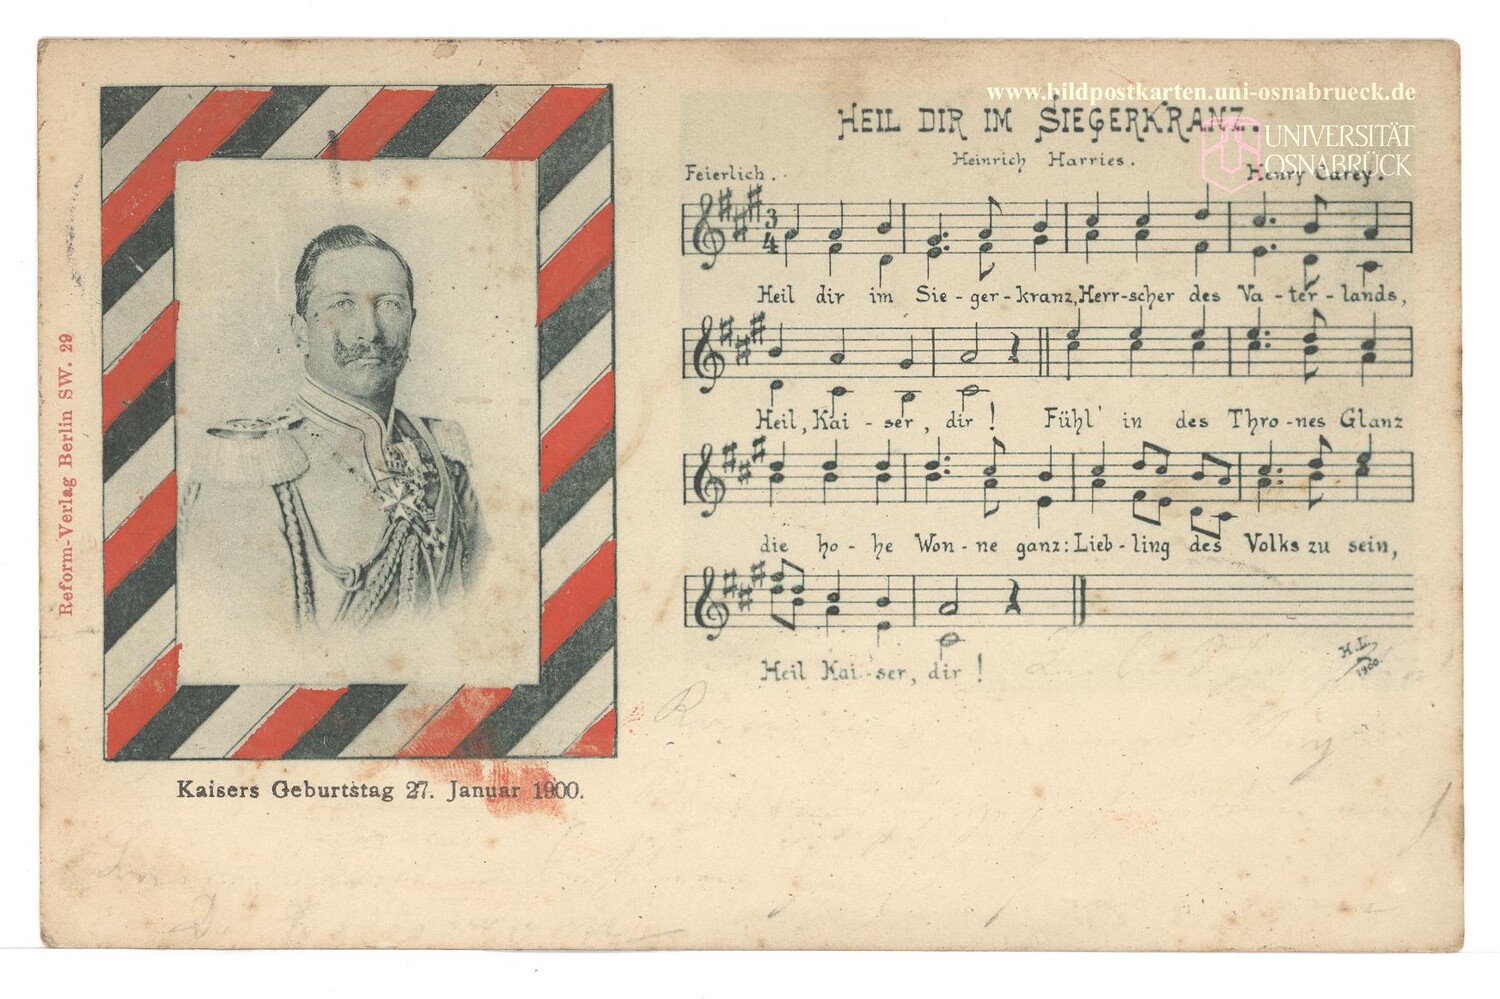 www.bildpostkarten.uni-osnabrueck.de
UNIVERSITÄT
OSNABRÜCK
HEIL DIR IM SIEGERKRANZ.
Heinrich Harries.
Feierlich.
Henry Carey.
3
4
Heil dir im Sie-ger-kranz, Herr-scher des Va-ter-lands,
Heil, Kai-ser, dir! Fühl' in des Thro-nes Glanz
die ho-he Won-ne ganz: Lieb-ling des Volks zu sein,
Heil Kai-ser, dir!
1900.
Reform-Verlag Berlin SW. 29
Kaisers Geburtstag 27. Januar 1900.